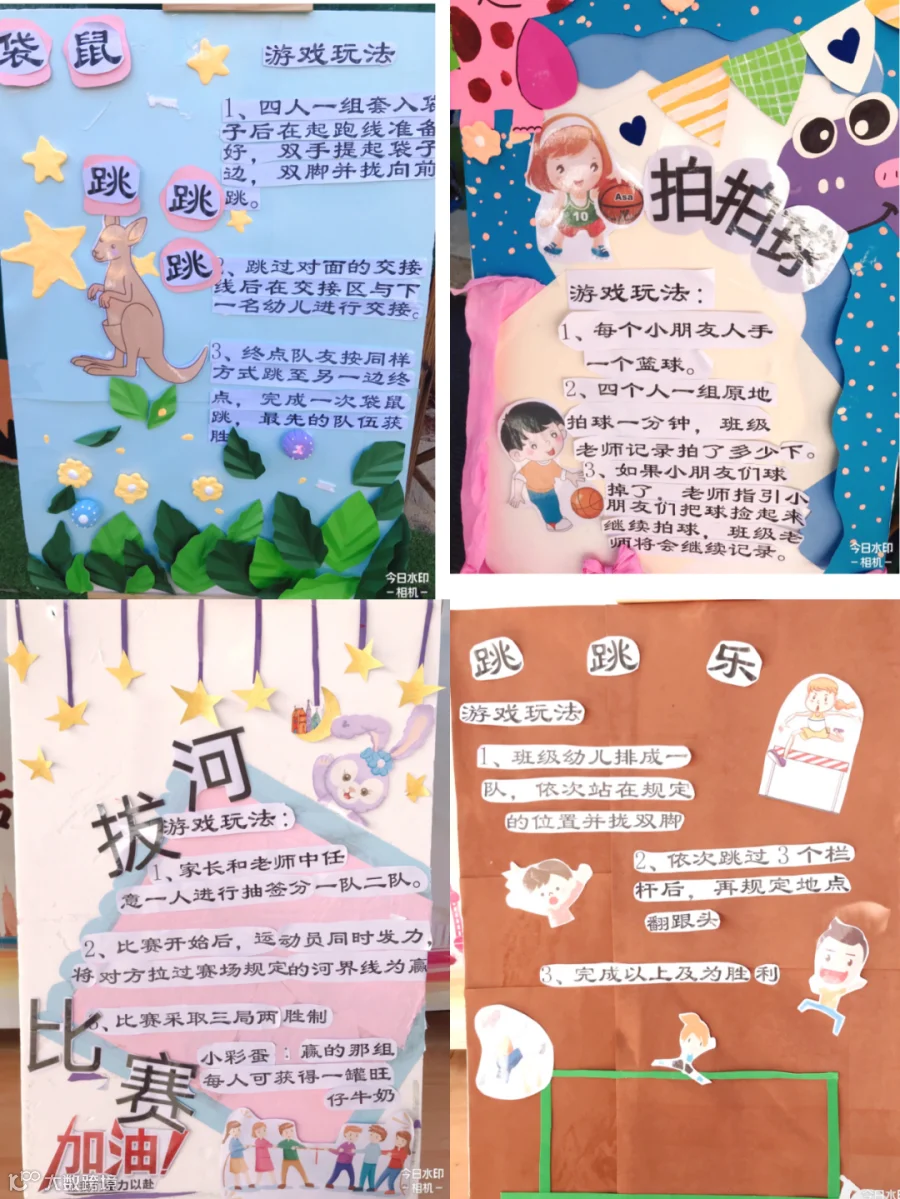 袋鼠
跳
跳
跳
游戏玩法
1、四人一组套入袋
子后在起跑线准备
好，双手提起袋子
边，双脚并找向前
跳。
2、跳过对面的交接
线后在交接区与下
一名幼儿进行交接。
3、终点队友按同样
方式跳至另一边终
点，完成一次袋鼠
跳，最先的队伍获
胜
今日水印
-相机-
拍拍球
Asa
10
游戏玩法：
1、每个小朋友人手
一个篮球。
2、四个人一组原地
拍球一分钟，班级
老师记录拍了多少下。
3、如果小朋友们球
掉了，老师指引小
朋友们把球捡起来
继续拍球，班级老
师将会继续记录。
今日水印
-相机-
拔河
比赛
游戏玩法：
1、家长和老师中任
意一人进行抽签分一队二队。
2、比赛开始后，运动员同时发力，
将对方拉过赛场规定的河界线为赢
3、比赛采取三局两胜制
小彩蛋：赢的那组
每人可获得一罐旺
仔牛奶
加油！
力以赴
大数跨境
今日水印
-相机-
跳跳乐
游戏玩法
1、班级幼儿排成一
队，依次站在规定
的位置并拢双脚
2、依次跳过3个栏
杆后，再规定地点
翻跟头
3、完成以上及为胜利
今日水印